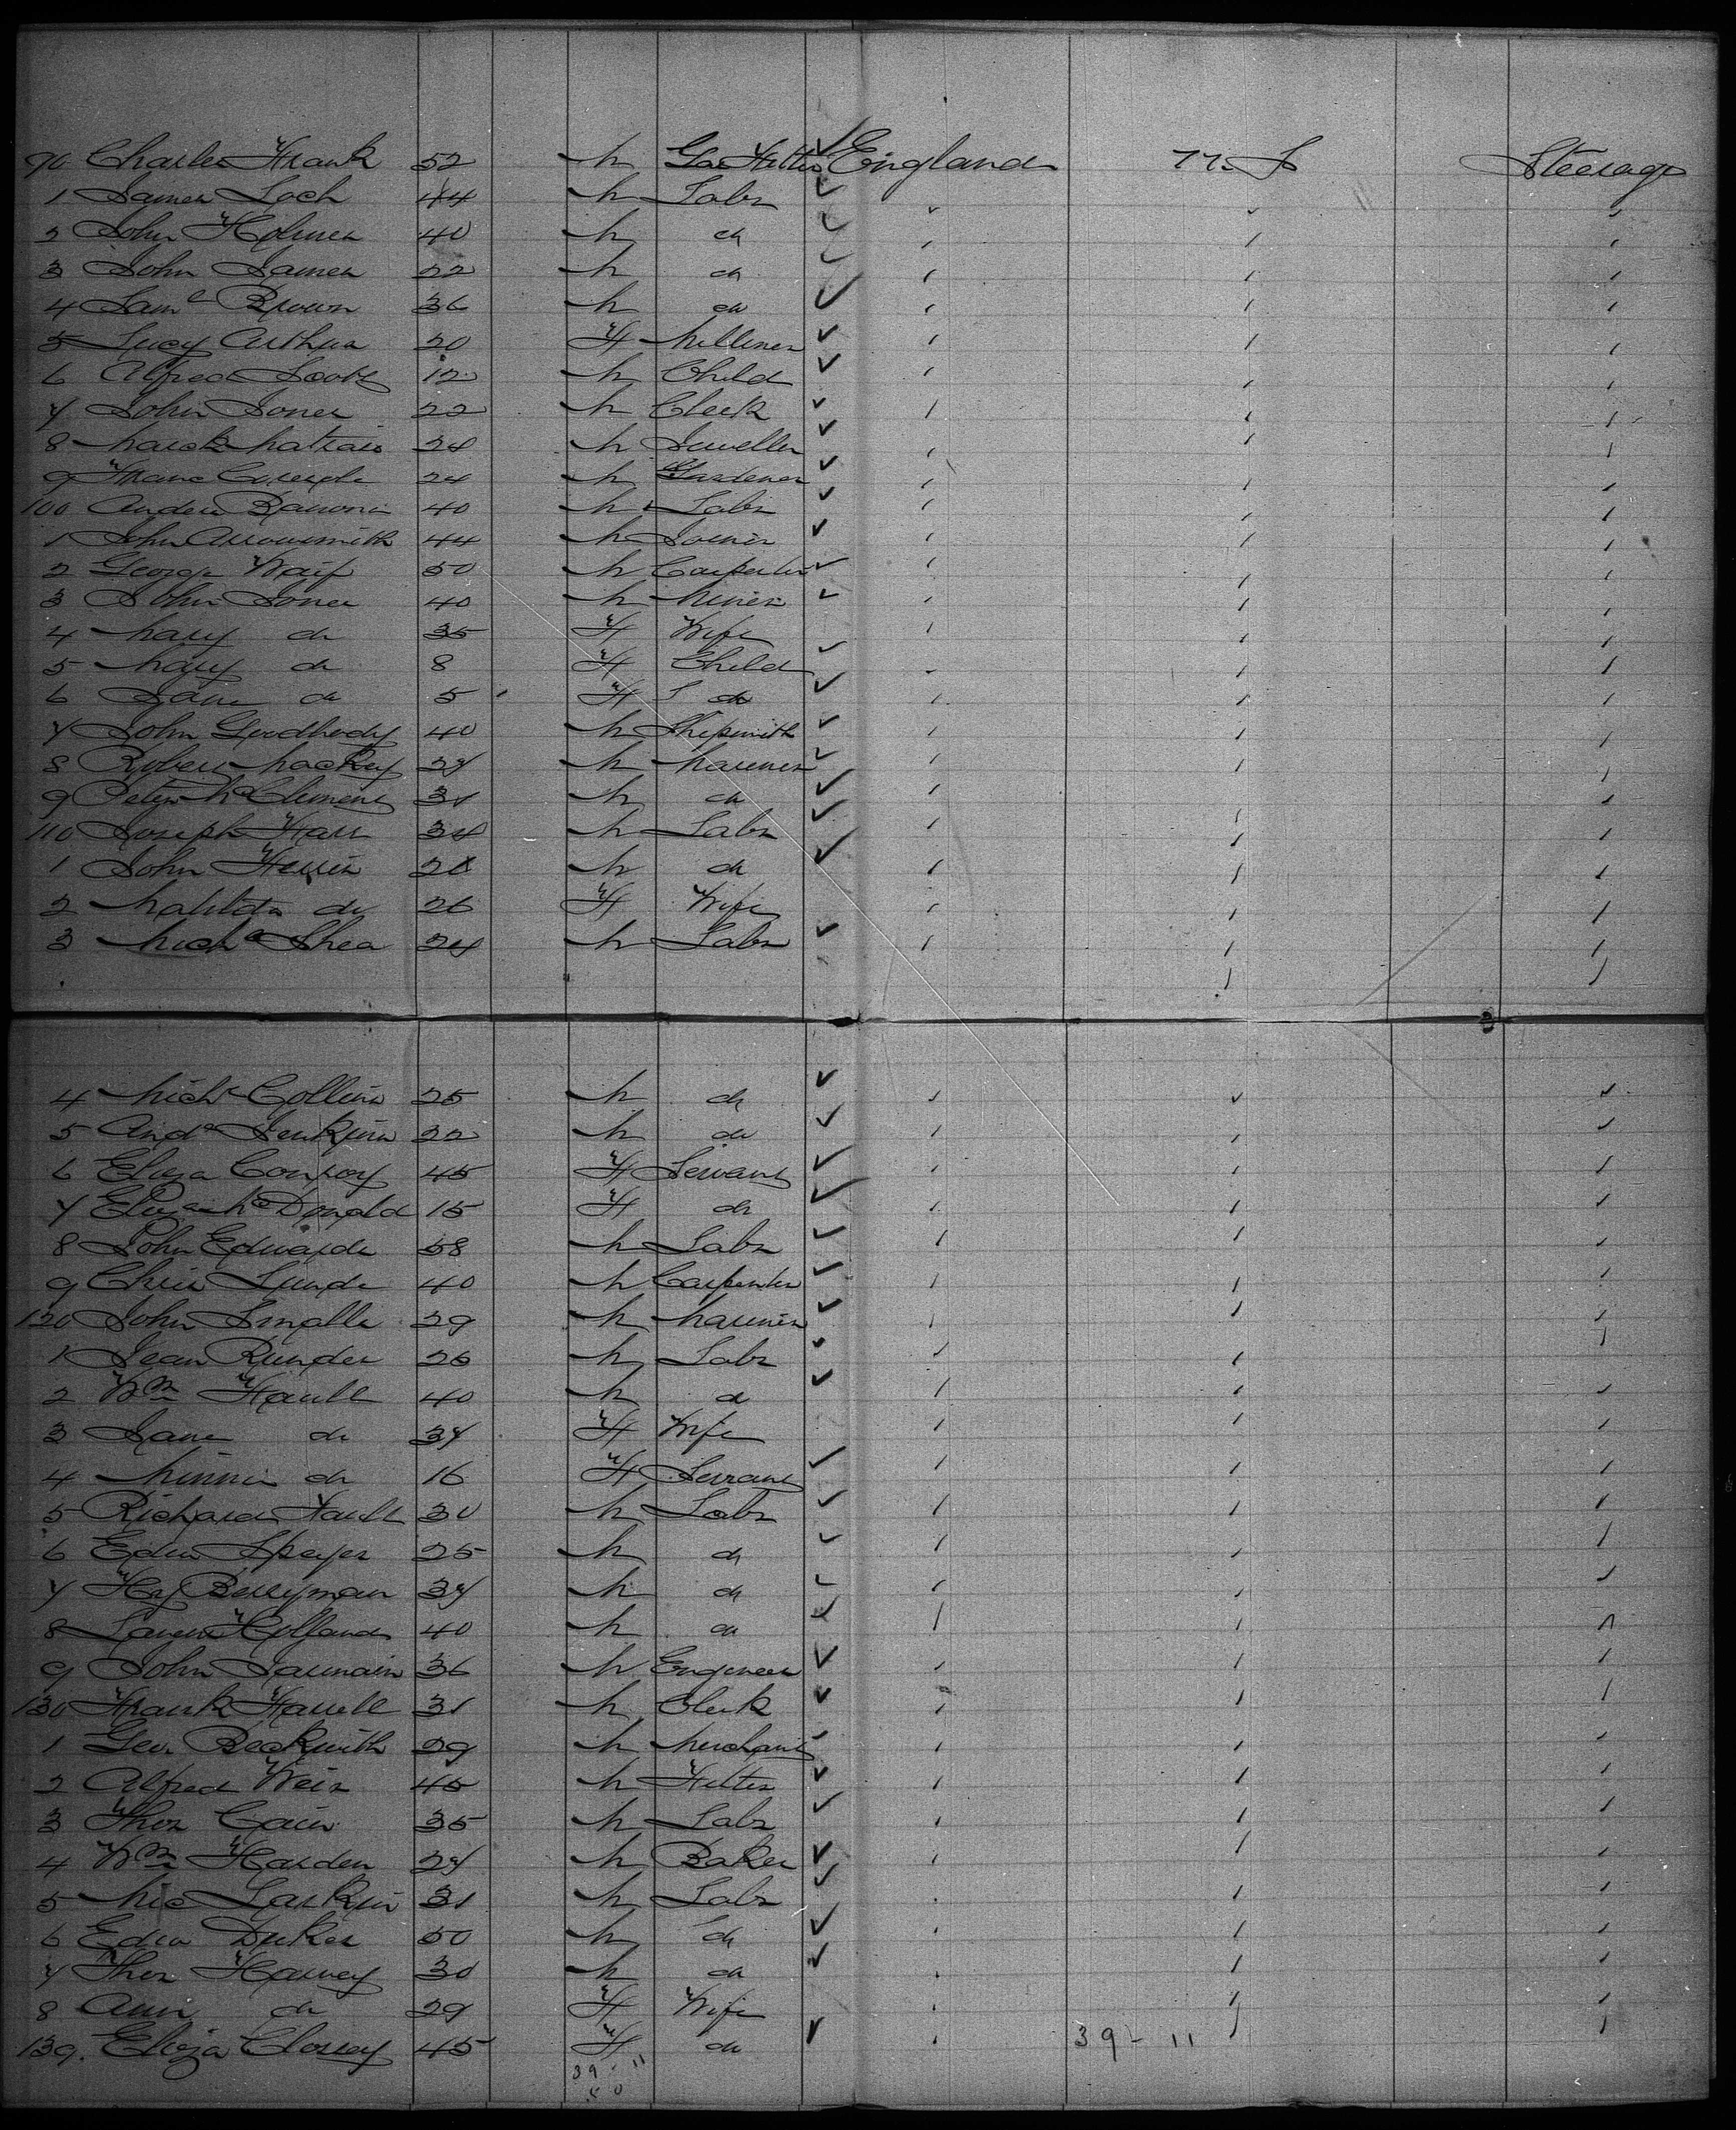 90 Charles Frank 52 M Gas Fitter England U. S Steerage
1 James Loch 44 M Labr
2 John Holmes 40 M do
3 John James 22 M do
4 Saml Brown 36 M do
5 Lucy Arthur 20 F Milliner
6 Alfred Scott 12 M Child
7 John Jones 22 M Clerk
8 Mark 24 M Jeweller
9 Franc 24 M Gardener
100 Andrew 40 M Labr
1 John Arrowsmith 44 M Joiner
2 George 50 M Carpenter
3 John Jones 40 M Miner
4 Mary do 35 F Wife
5 Mary do 8 F Child
6 Jane do 5 F do
7 John Goodbody 40 M Shipsmith
8 Robert Mackey 27 M Mariner
9 Peter McClement 31 M do
110 Joseph 34 M Labr
1 John 28 M do
2 Matilda do 26 F Wife
3 Michl Shea 24 M Labr
4 Michl Collins 25 M do
5 Andw Jenkins 22 M do
6 Eliza Conroy 45 F Servant
7 Eliza McDonald 15 F do
8 John Edwards 58 M Labr
9 Chris Lunde 40 M Carpenter
120 John Smalle 29 M Mariner
1 Jean 26 M Labr
2 Wm 40 M do
3 Jane do 37 F Wife
4 Minnie do 16 F Servant
5 Richard 30 M Labr
6 Edwd 25 M do
7 Hy Berryman 37 M do
8 Holland 40 M do
9 John 36 M Engineer
130 Frank Farrell 31 M Clerk
1 Geo. Beckwith 29 M Merchant
2 Alfred Weir 45 M Fitter
3 Thos Cain 35 M Labr
4 Wm Harden 27 M Baker
5 Mic Larkin 31 M Labr
6 Edwd Dukes 50 M do
7 Thos Harvey 30 M do
8 Ann do 29 F Wife
139. Eliza Clossey 45 F do 39 - 11
39 - 11
50